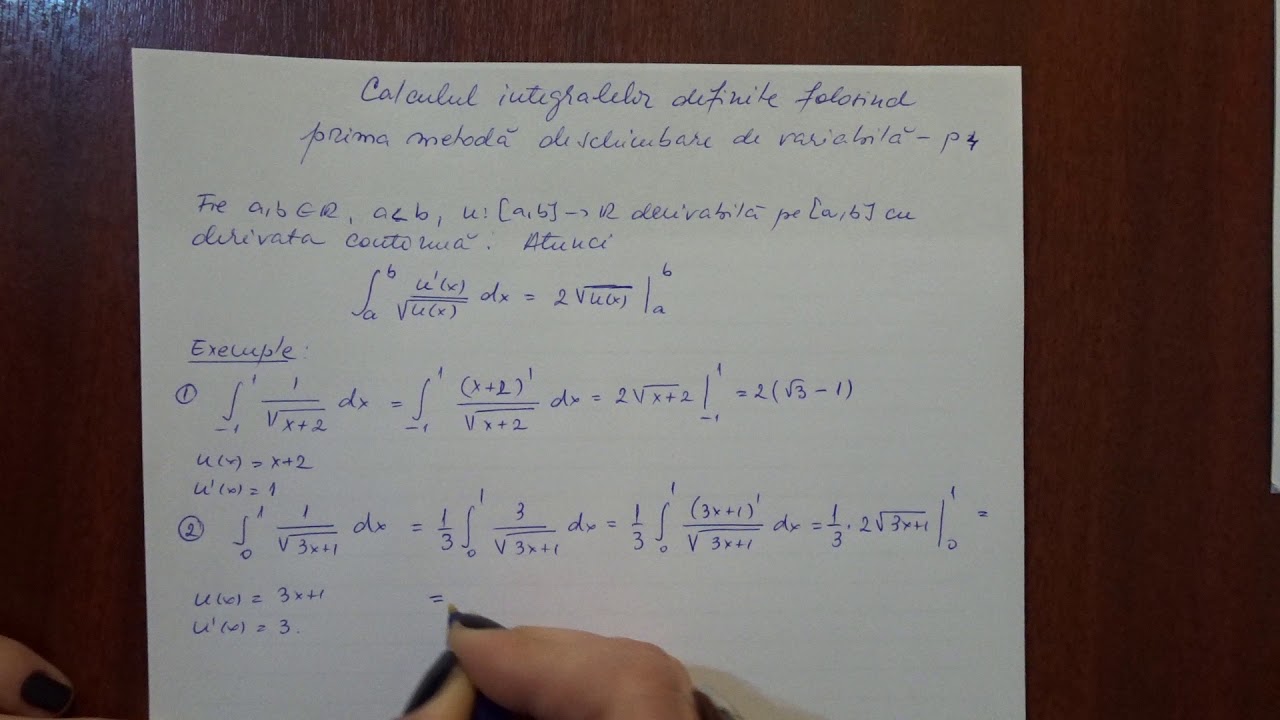 Calculul integralelor definite folosind
prima metodă de schimbare de variabilă - p4
Fie a,b ∈ ℝ, a<b, u: [a,b] → ℝ derivabilă pe [a,b] cu
derivata continuă. Atunci
∫_a^b u'(x)/√u(x) dx = 2√u(x) |_a^b
Exemple:
① ∫_{-1}^1 1/√(x+2) dx = ∫_{-1}^1 (x+2)'/√(x+2) dx = 2√(x+2) |_{-1}^1 = 2(√3 - 1)
u(x) = x+2
u'(x) = 1
② ∫_0^1 1/√(3x+1) dx = 1/3 ∫_0^1 3/√(3x+1) dx = 1/3 ∫_0^1 (3x+1)'/√(3x+1) dx = 1/3 · 2√(3x+1) |_0^1 =
u(x) = 3x+1 =
u'(x) = 3.